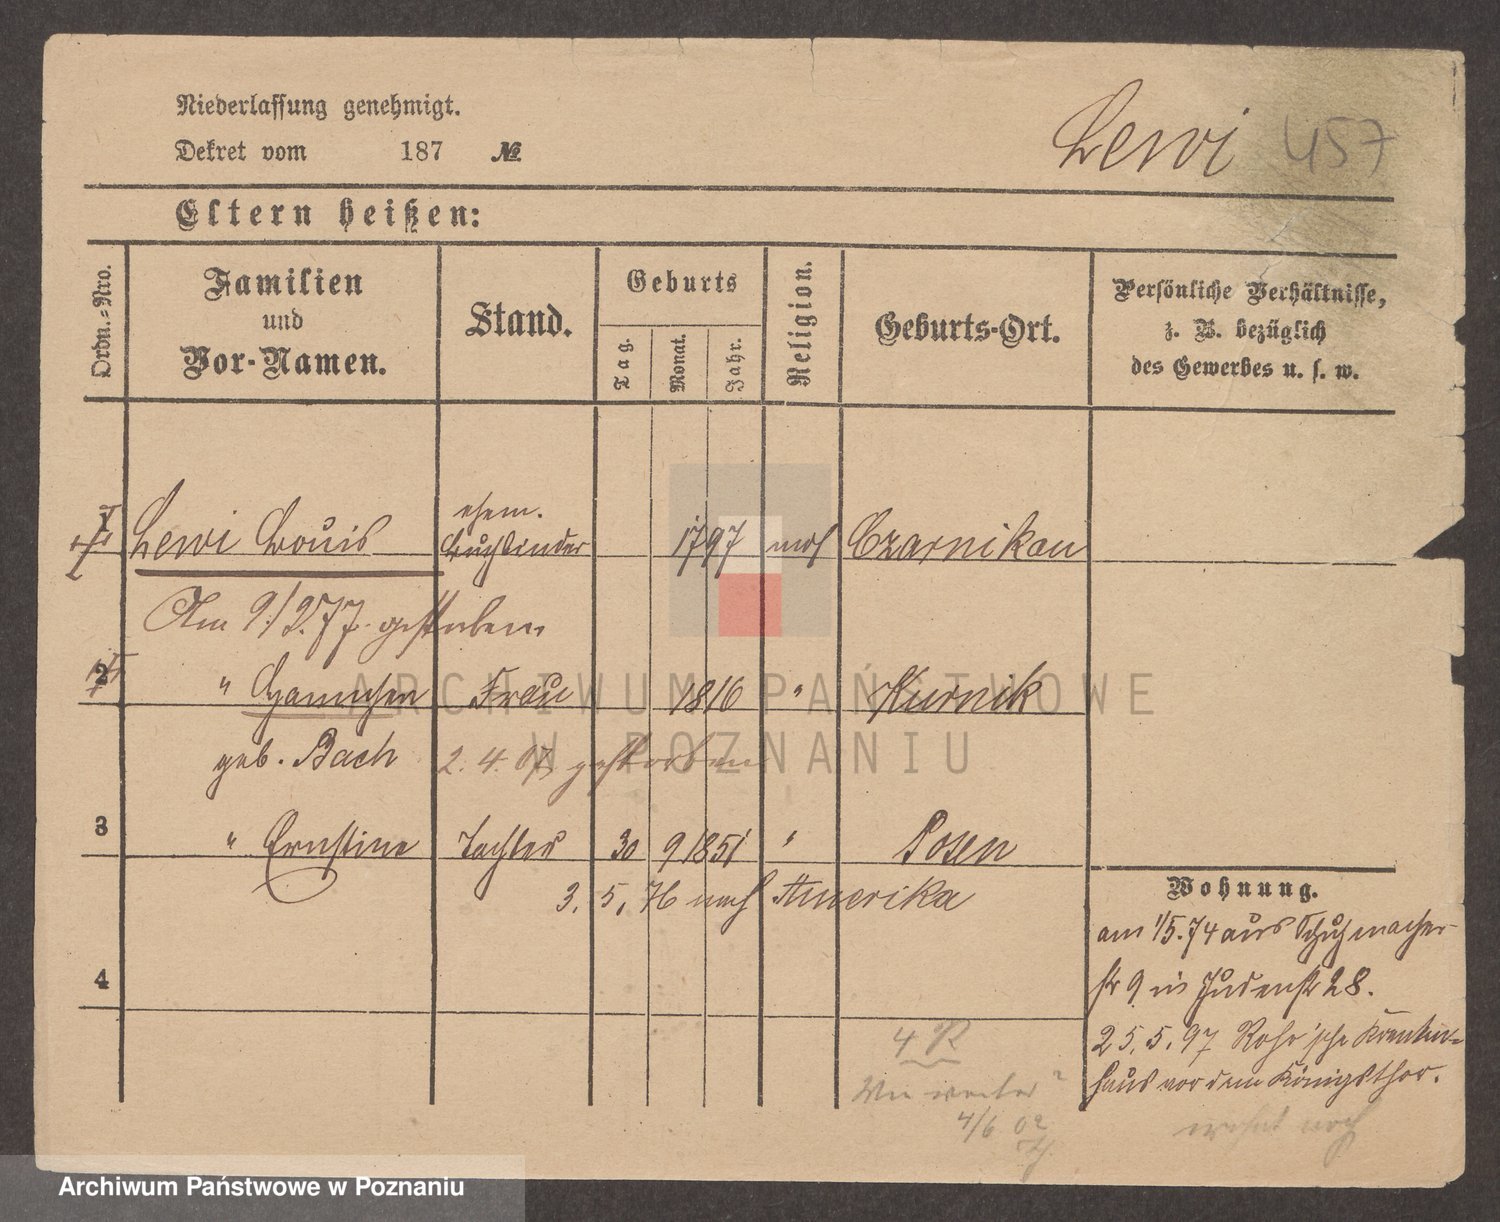 Niederlassung genehmigt.
Dekret vom 187 №
Lewi 457
Eltern heißen:
Ordn.=Nro.
Familien
und
Vor-Namen.
Stand.
Geburts
Tag.
Monat.
Jahr.
Religion.
Geburts-Ort.
Persönliche Verhältnisse,
z. B. bezüglich
des Gewerbes u. s. w.
ehem.
1 Lewi Louis Buchbinder 1797 mos Czarnikau
Am 9/2.77. gestorben
2 " Hannchen Frau 1816 " Kurnik
geb. Bach 2.4.07 gestorben
3 " Ernstine Tochter 30 9 1851 " Posen
3. 5. 76 nach Amerika
Wohnung.
am 1/5.74 aus Schuhmacher-
str 9 in Judenstr 28.
4
25.5.97 Rohr'sche Kranken-
haus vor dem Königsthor.
4 R
4/6 02
wohnt noch
ARCHIWUM PAŃSTWOWE
W POZNANIU
Archiwum Państwowe w Poznaniu